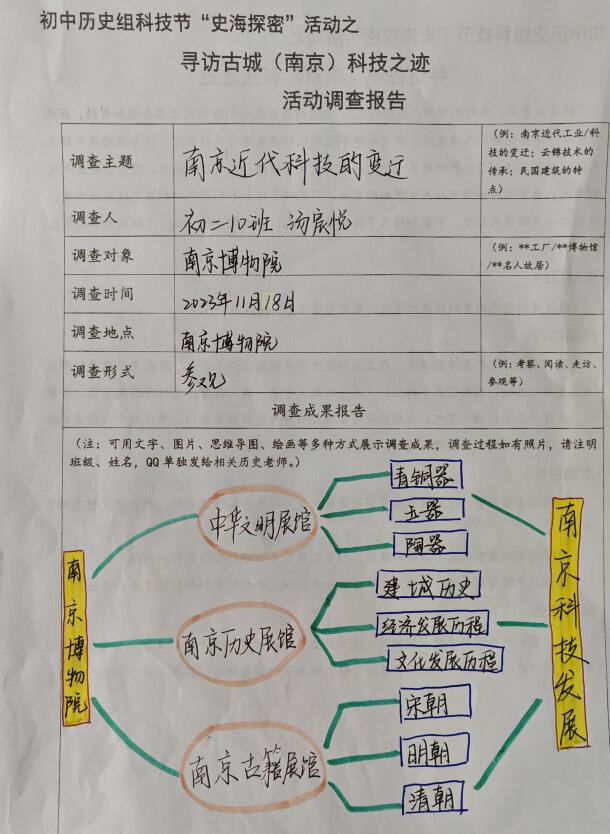 初中历史组科技节“史海探密”活动之
寻访古城（南京）科技之迹
活动调查报告
调查主题
南京近代科技的变迁
（例：南京近代工业/科
技的变迁；云锦技术的
传承；民国建筑的特
点）
调查人
初二10班 汤宸悦
调查对象
南京博物院
（例：**工厂/**博物馆
/**名人故居）
调查时间
2023年11月18日
调查地点
南京博物院
调查形式
参观
（例：考察、阅读、走访、
参观等）
调查成果报告
（注：可用文字、图片、思维导图、绘画等多种方式展示调查成果，调查过程如有照片，请注明
班级、姓名，QQ单独发给相关历史老师。）
南京博物院
中华文明展馆
青铜器
玉器
陶器
南京历史展馆
建城历史
经济发展历程
文化发展历程
南京古籍展馆
宋朝
明朝
清朝
南京科技发展